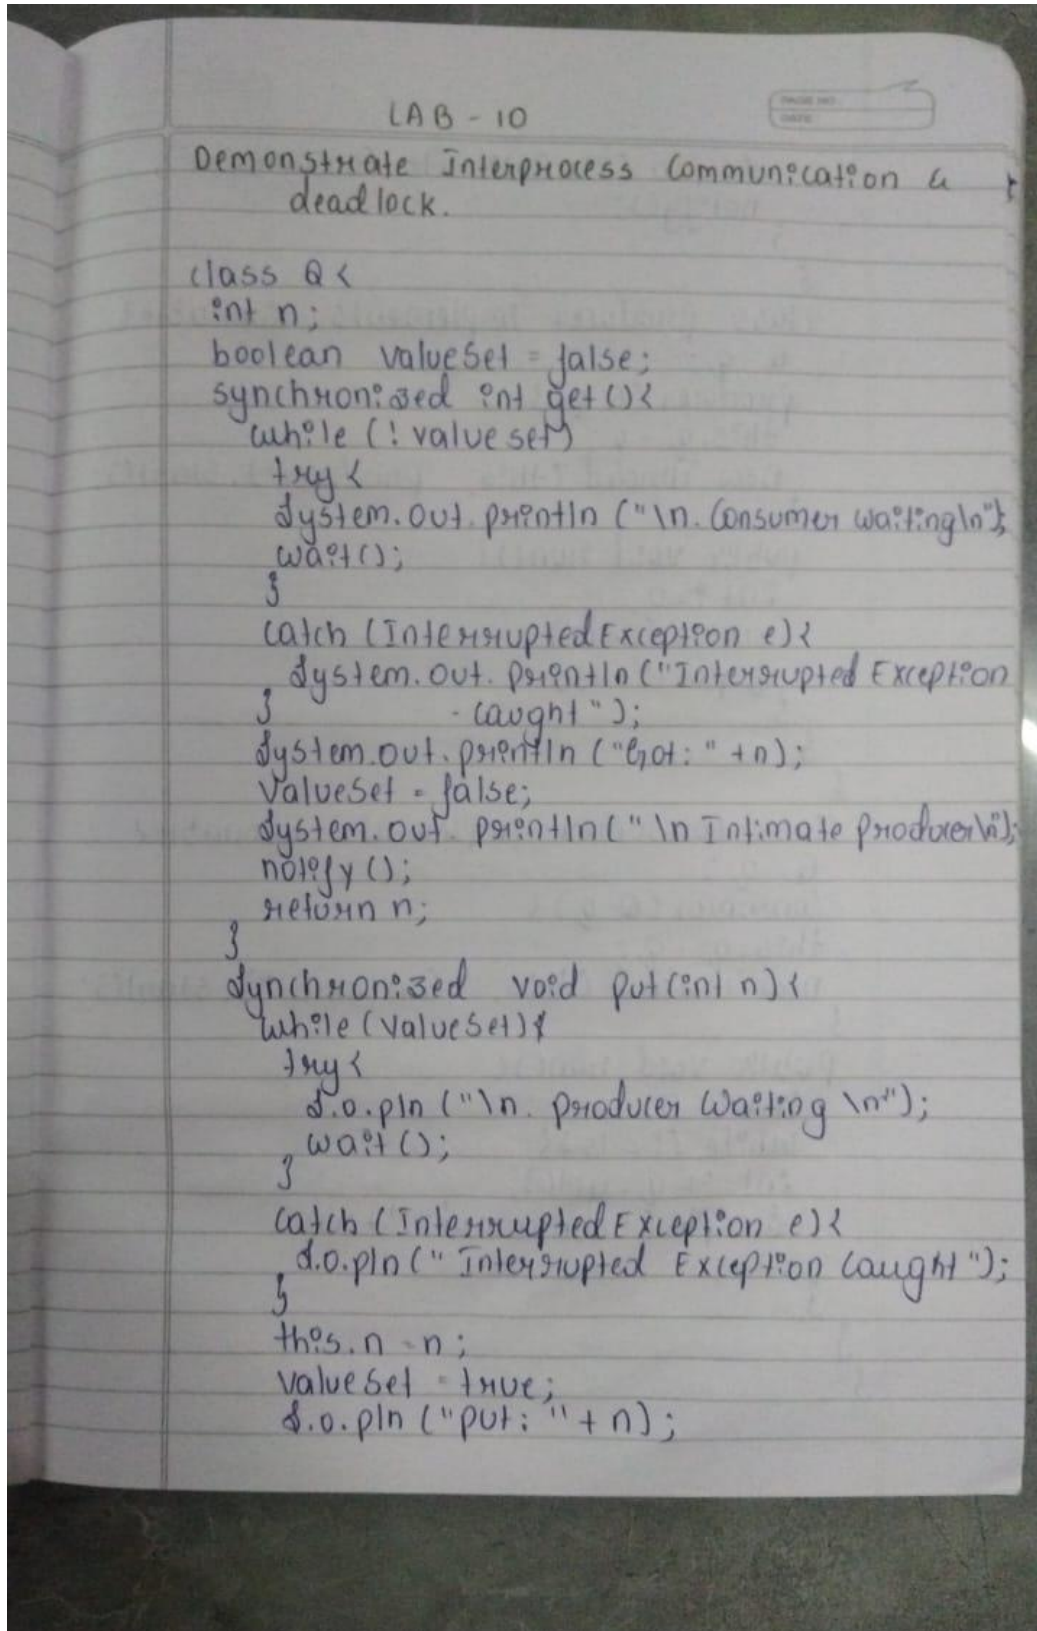 LAB - 10
PAGE NO
DATE
Demonstrate Interprocess Communication &
deadlock.
class Q {
int n;
boolean valueSet = false;
synchronized int get() {
while (! valueset)
try {
System.out.println ("\n. Consumer waiting\n");
wait();
}
catch (InterruptedException e) {
System.out.println ("Interrupted Exception
} - caught ");
System.out.println ("Got: " +n);
valueSet = false;
System.out.println(" \n Intimate Producer\n");
notify ();
return n;
}
Synchronized void put (int n) {
while (valueSet)
try {
S.o.pln ("\n. Producer Waiting \n");
wait ();
}
catch (InterruptedException e) {
S.o.pln (" Interrupted Exception caught ");
}
this.n = n;
valueSet = true;
S.o.pln ("put: " + n);